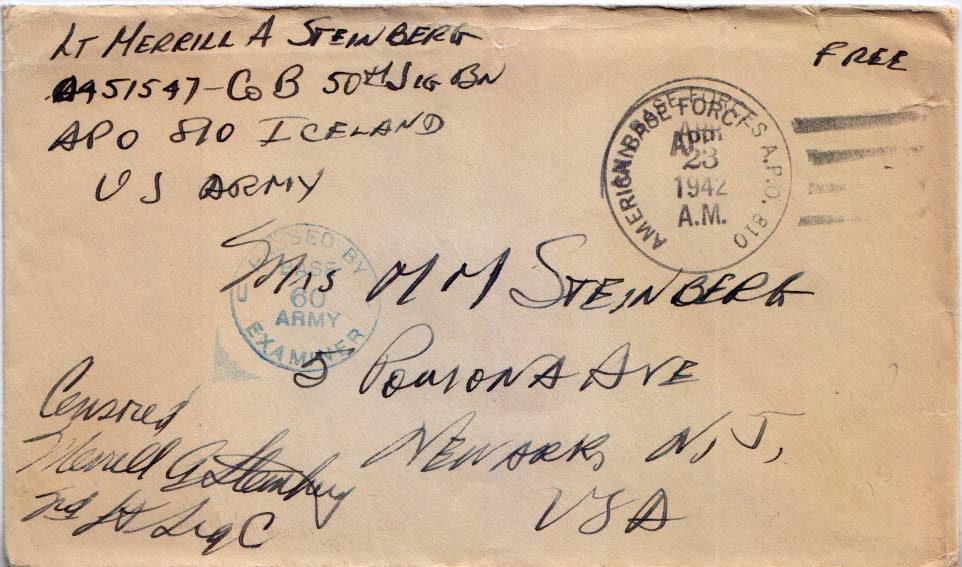 LT MERRILL A STEINBERG
0451547-Co B 50th SIG BN
APO 810 ICELAND
U S ARMY
FREE
AMERICAN BASE FORCES A.P.O. 810
APR
23
1942
A.M.
PASSED BY
BASE
60
ARMY
EXAMINER
Mrs M M STEINBERG
5 POMONA AVE
NEWARK, N.J.,
USA
Censored
Merrill A Steinberg
2nd Lt Sig C